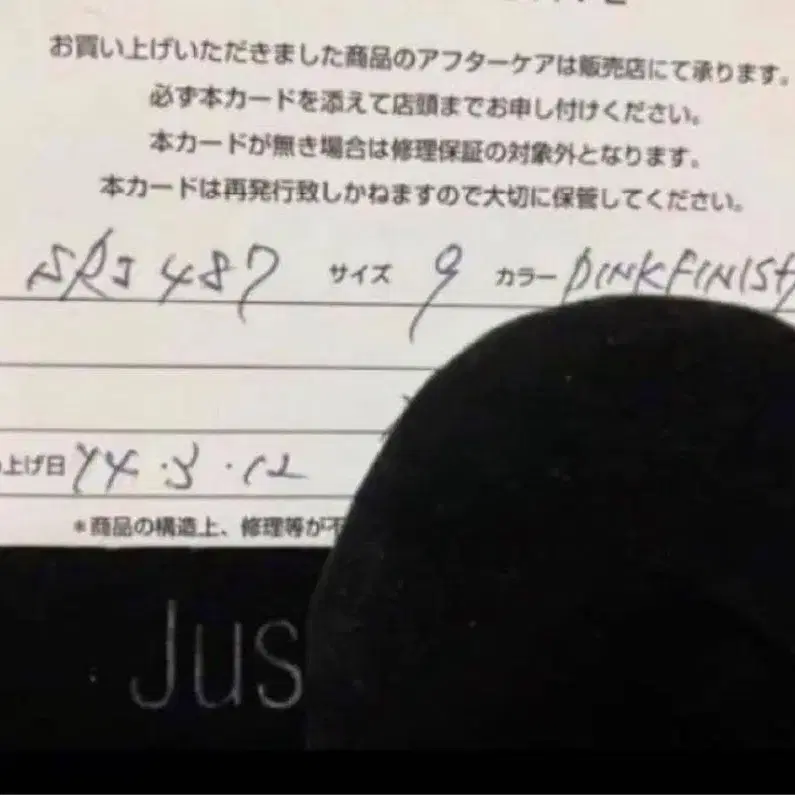 お買い上げいただきました商品のアフターケアは販売店にて承ります。
必ず本カードを添えて店頭までお申し付けください。
本カードが無き場合は修理保証の対象外となります。
本カードは再発行致しかねますので大切に保管してください。
SRJ 487 サイズ 9 カラー PINKFINISH
上げ日 14.3.12
*商品の構造上、修理等が不
Jus